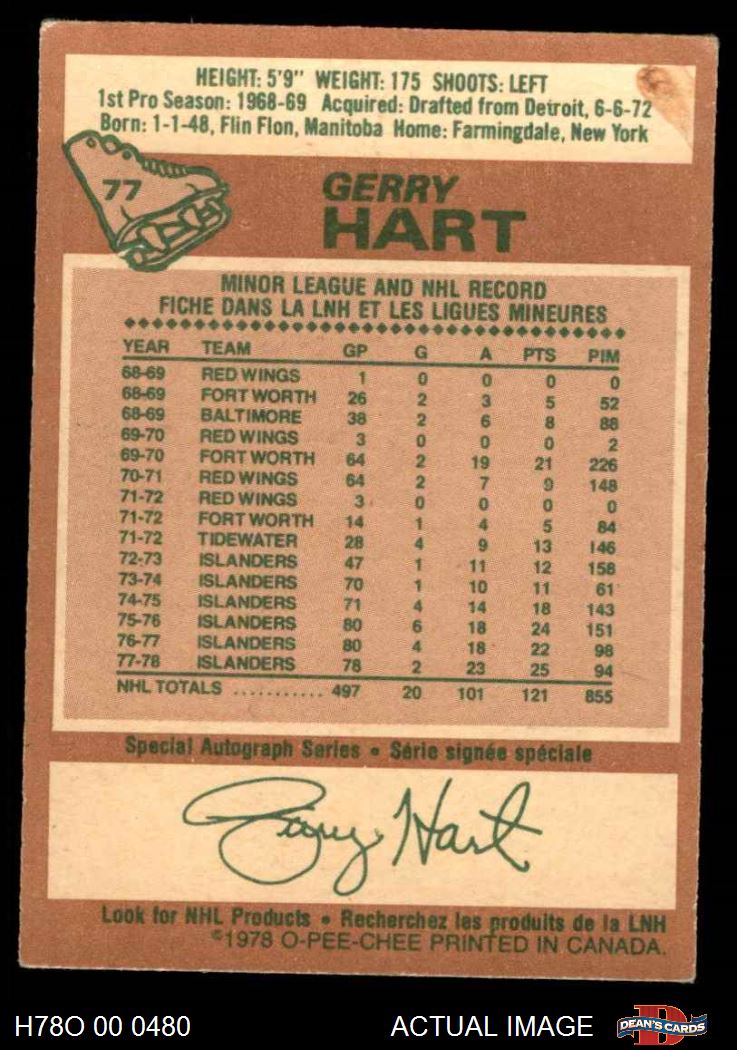 HEIGHT: 5'9" WEIGHT: 175 SHOOTS: LEFT
1st Pro Season: 1968-69 Acquired: Drafted from Detroit, 6-6-72
Born: 1-1-48, Flin Flon, Manitoba Home: Farmingdale, New York
77
GERRY
HART
MINOR LEAGUE AND NHL RECORD
FICHE DANS LA LNH ET LES LIGUES MINEURES
YEAR TEAM GP G A PTS PIM
68-69 RED WINGS 1 0 0 0 0
68-69 FORT WORTH 26 2 3 5 52
68-69 BALTIMORE 38 2 6 8 88
69-70 RED WINGS 3 0 0 0 2
69-70 FORT WORTH 64 2 19 21 226
70-71 RED WINGS 64 2 7 9 148
71-72 RED WINGS 3 0 0 0 0
71-72 FORT WORTH 14 1 4 5 84
71-72 TIDEWATER 28 4 9 13 146
72-73 ISLANDERS 47 1 11 12 158
73-74 ISLANDERS 70 1 10 11 61
74-75 ISLANDERS 71 4 14 18 143
75-76 ISLANDERS 80 6 18 24 151
76-77 ISLANDERS 80 4 18 22 98
77-78 ISLANDERS 78 2 23 25 94
NHL TOTALS ........... 497 20 101 121 855
Special Autograph Series • Série signée spéciale
Gerry Hart
Look for NHL Products • Recherchez les produits de la LNH
©1978 O-PEE-CHEE PRINTED IN CANADA.
H78O 00 0480 ACTUAL IMAGE DEAN'S CARDS